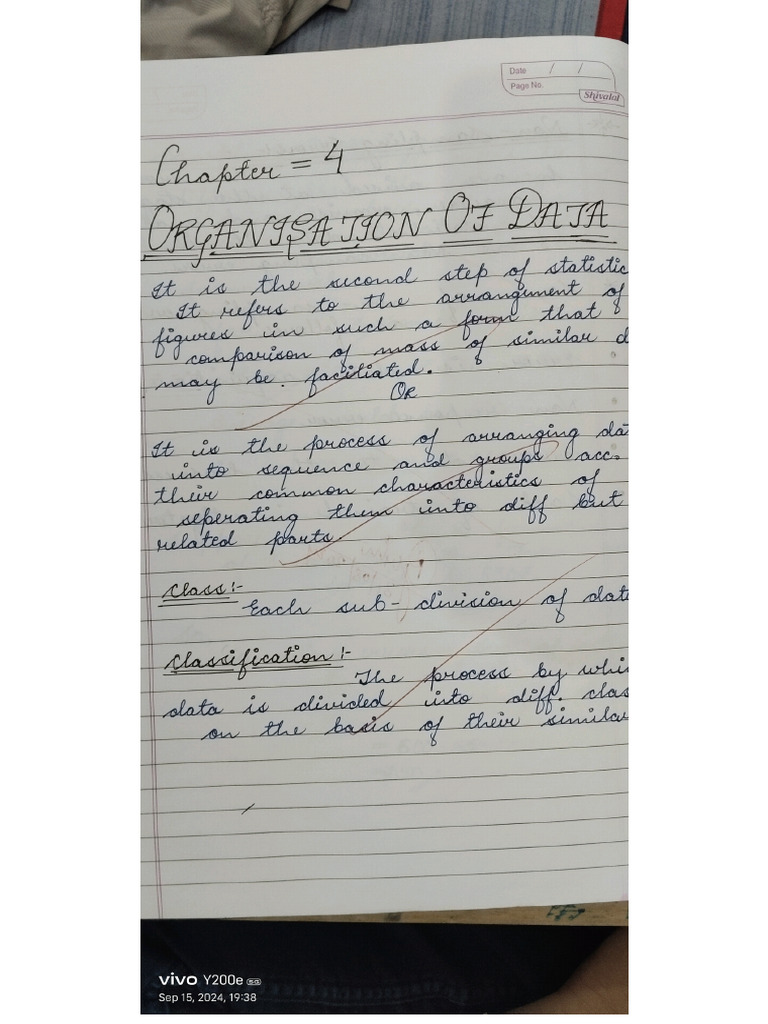 Date / /
Page No.
Shivalal
Chapter = 4
ORGANISATION OF DATA
It is the second step of statistic
It refers to the arrangement of
figures in such a form that
comparison of mass of similar d
may be. faciliated.
OR
It is the process of arranging da
into sequence and groups acc.
their common characteristics of
seperating them into diff but
related parts.
Class:-
Each sub-division of data
Classification:-
The process by whi
data is divided into diff. clas
on the basis of their similar
vivo Y200e 5G
Sep 15, 2024, 19:38